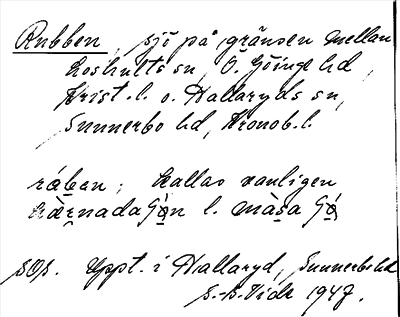 Rubben, sjö på gränsen mellan
Loshults sn, Ö. Göinge hd
Krist. l. o. Hallaryds sn,
Sunnerbo hd, Kronob. l.
rában; kallas vanligen
l. màsa
sOs. Uppt. i Hallaryd, Sunnerbo hd
1947.